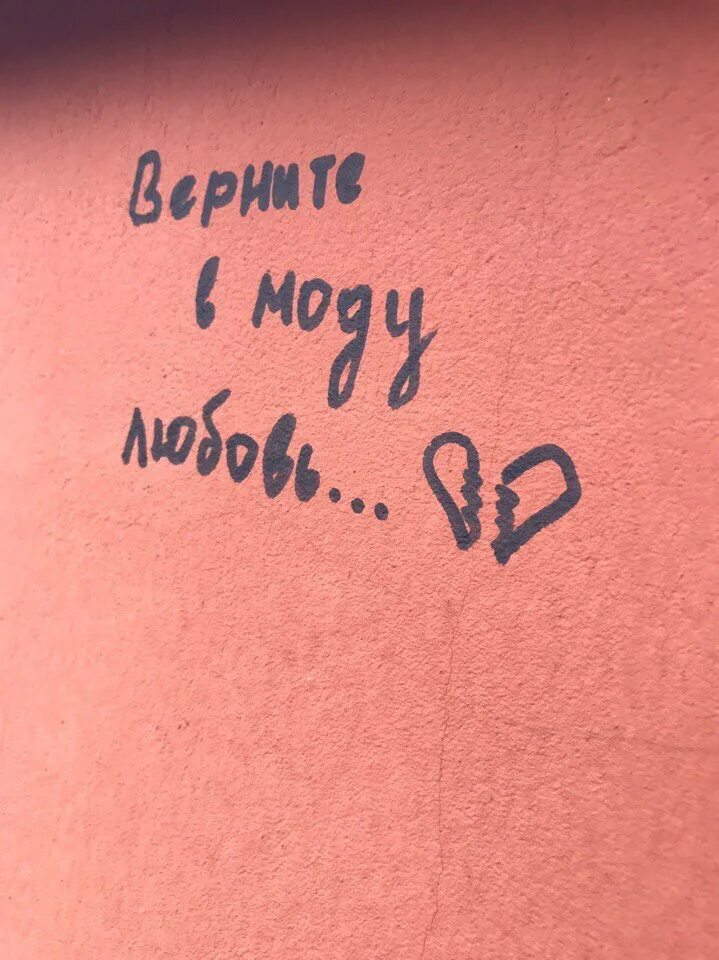 Верните
в моду
любовь...